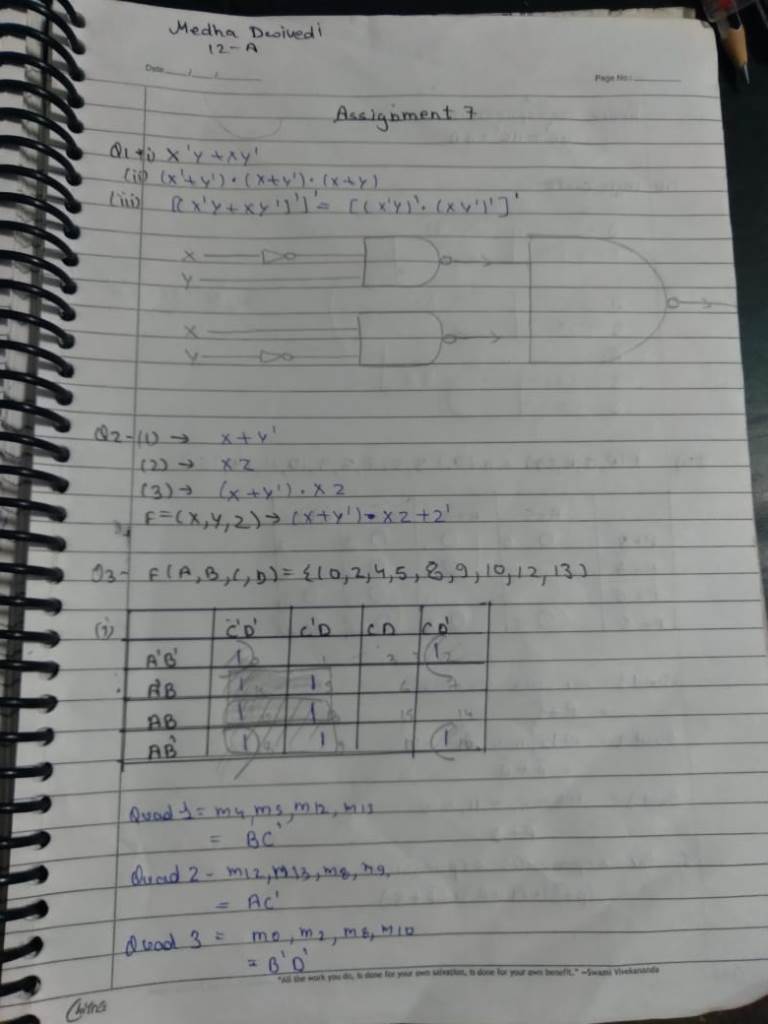 Medha Dwivedi
12-A
Date / /
Page No:
Assignment 7
Q1 i) X'Y + XY'
(ii) (X'+Y') . (X+Y') . (X+Y)
(iii) [(X'Y + XY')']' = [(X'Y)' . (XY')']'
X
Y
X
Y
Q2-(1) → X+Y'
(2) → XZ
(3) → (X+Y') . XZ
F=(X,Y,Z) → (X+Y') . XZ+Z'
Q3- F(A,B,C,D) = Σ(0,2,4,5,8,9,10,12,13)
(i) C'D' C'D CD CD'
A'B' 1 0 1 1 2
A'B 1 4 1 5 6 7
AB 1 1 15 14
AB' 1 1 1 10
Quad 1 = m4, m5, m12, m13
= BC'
Quad 2 - m12, m13, m8, m9,
= AC'
Quad 3 = m0, m2, m8, m10
= B'D'
"All the work you do, is done for your own salvation, is done for your own benefit." ~Swami Vivekananda